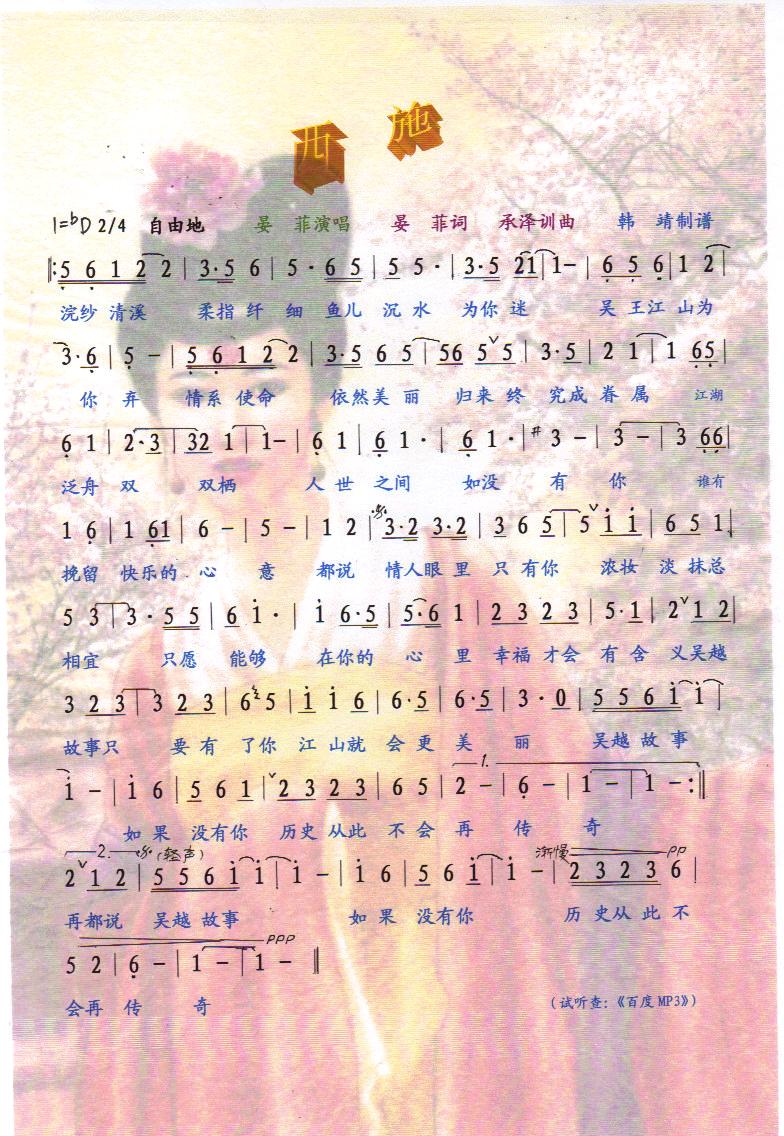 西施
1=ᵇD 2/4 自由地 晏菲演唱 晏菲词 承泽训曲 韩靖制谱
‖:5 6 1 2 2 | 3·5 6 | 5 · 6 5 | 5 5 · | 3·5 21 | 1- | 6 5 6 | 1 2 |
浣纱 清溪 柔指 纤 细 鱼儿 沉 水 为你 迷 吴 王江 山为
3·6 | 5 - | 5 6 1 2 2 | 3·5 6 5 | 56 5ⱽ5 | 3·5 | 2 1 | 1 65 |
你 弃 情系 使命 依然美 丽 归来 终 究成 眷 属 江湖
6 1 | 2·3 | 32 1 | 1- | 6 1 | 6 1 · | 6 1 · | #3 - | 3 - | 3 66 |
泛舟 双 双栖 人 世 之间 如没 有 你 谁有
1 6 | 1 61 | 6 - | 5 - | 1 2 | 3·2 3·2 | 3 6 5 | 5ⱽi i | 6 5 1 |
挽留 快乐的 心 意 都说 情人眼 里 只 有你 浓妆 淡 抹总
5 3 | 3 · 5 5 | 6 i · | i 6·5 | 5·6 1 | 2 3 2 3 | 5·1 | 2ⱽ1 2 |
相宜 只愿 能够 在你的 心 里 幸福 才会 有 含 义吴越
3 2 3 | 3 2 3 | 6 5 | i i 6 | 6·5 | 6·5 | 3·0 | 5 5 6 i | i |
故事只 要 有 了你 江 山就 会 更 美 丽 吴越 故 事
i - | i 6 | 5 6 1 |ⱽ2 3 2 3 | 6 5 | 1. 2 - | 6 - | 1 - | 1 -:‖
如 果 没有你 历史 从此 不 会 再 传 奇
2. (轻声) 渐慢 pp
2ⱽ1 2 | 5 5 6 i i | i - | i 6 | 5 6 i | i - | 2 3 2 3 6 |
再都说 吴越 故事 如 果 没有你 历 史从 此 不
ppp
5 2 | 6 - | 1 - | 1 - ‖
会再 传 奇
(试听查:《百度MP3》)